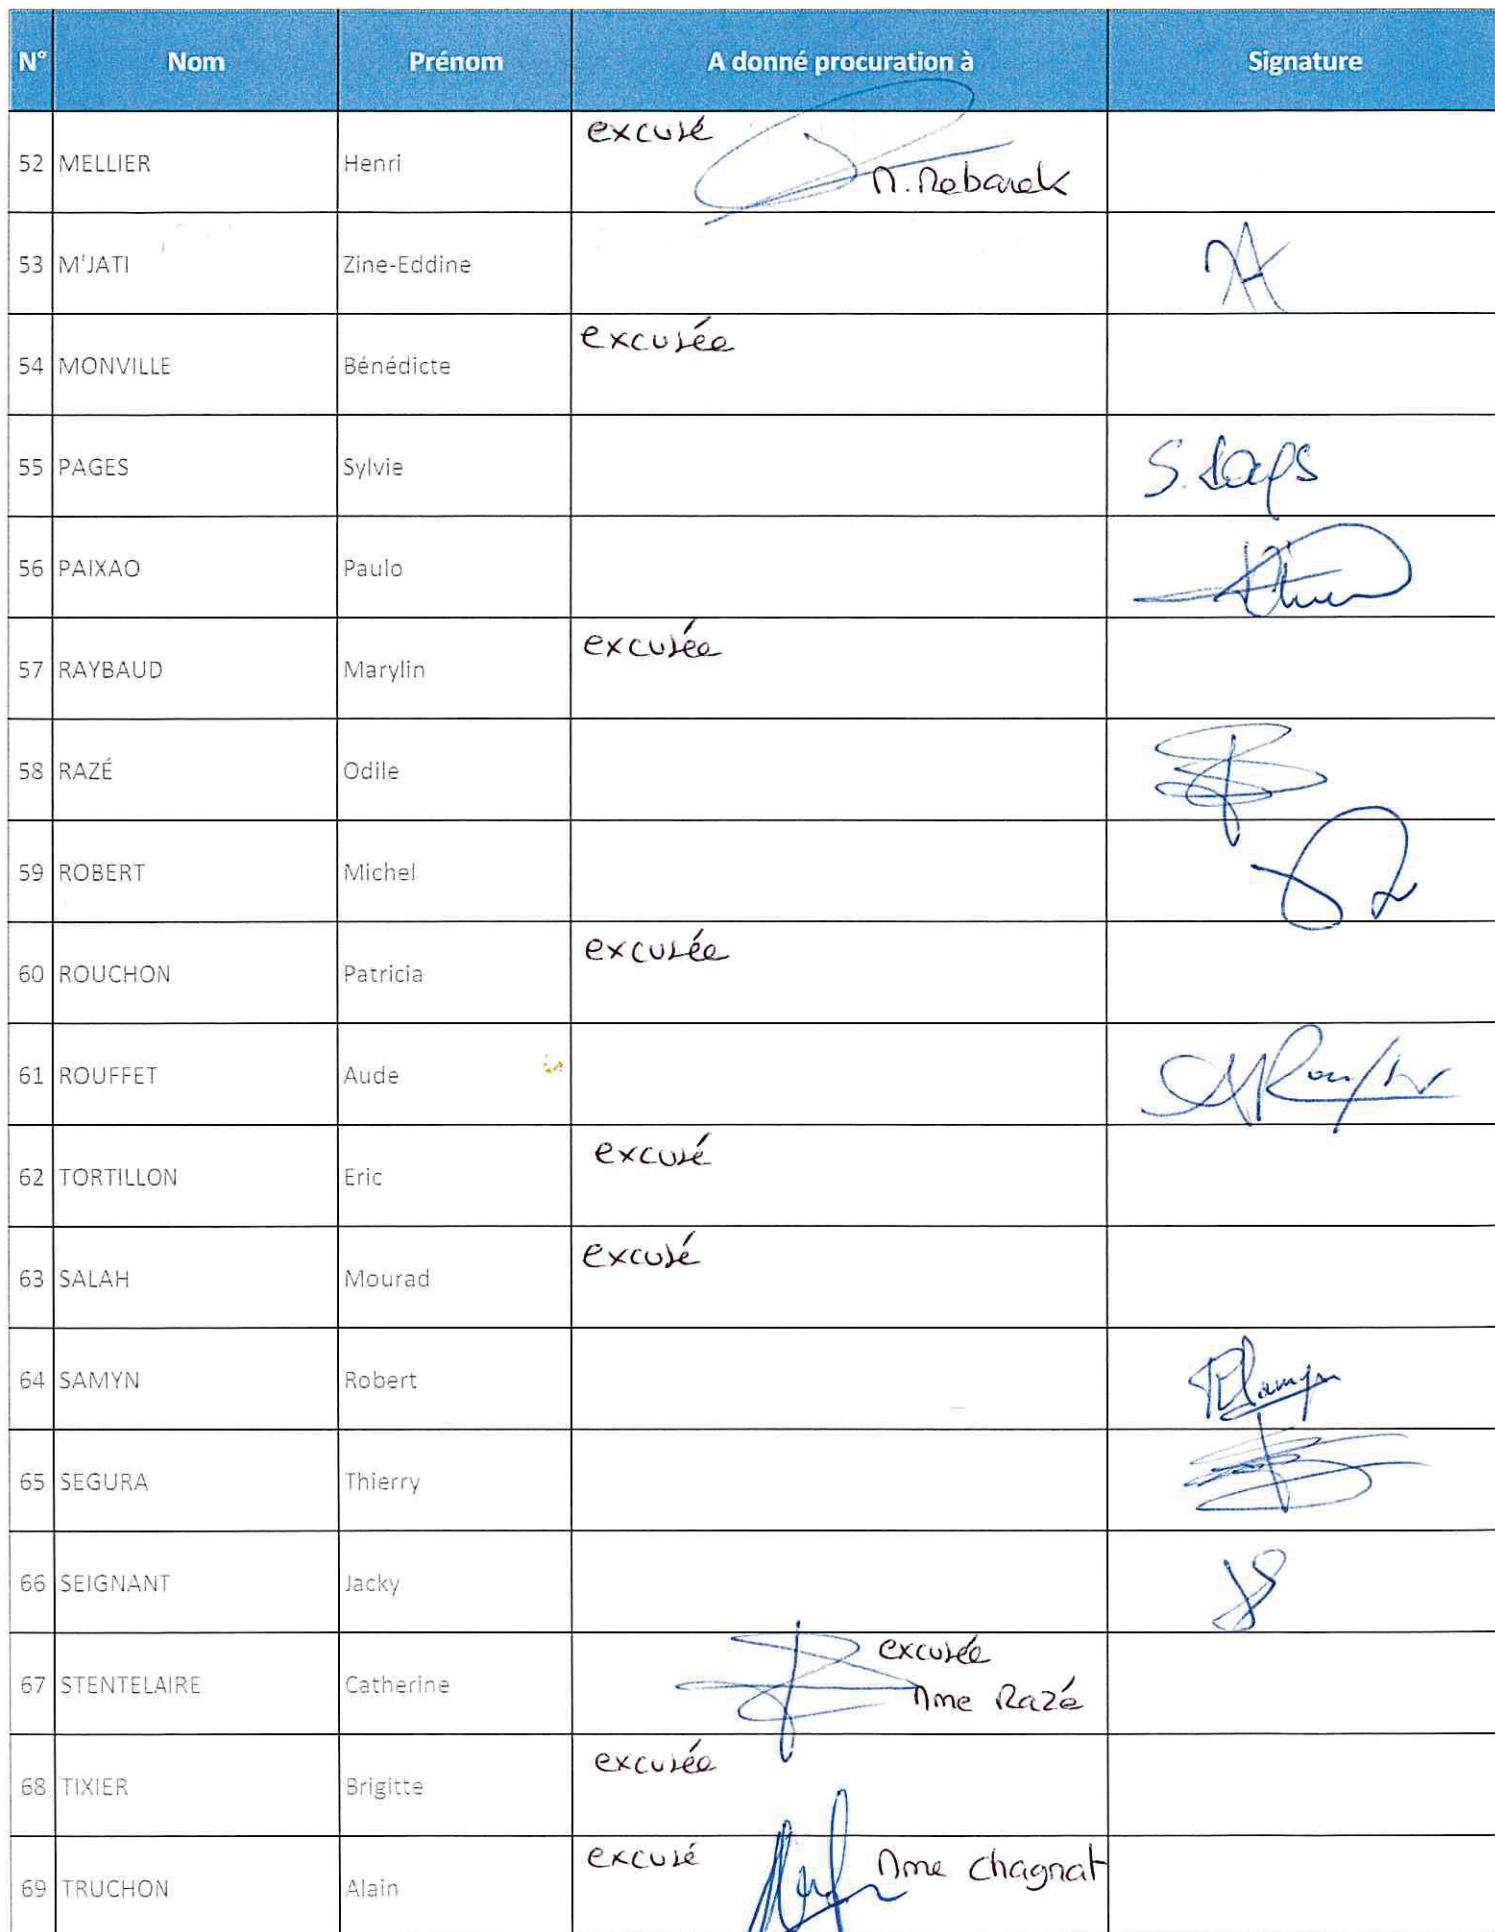 N° Nom Prénom A donné procuration à Signature
52 MELLIER Henri excusé
M. Mebarek
53 M'JATI Zine-Eddine
54 MONVILLE Bénédicte excusée
55 PAGES Sylvie
56 PAIXAO Paulo
57 RAYBAUD Marylin excusée
58 RAZÉ Odile
59 ROBERT Michel
60 ROUCHON Patricia excusée
61 ROUFFET Aude
62 TORTILLON Eric excusé
63 SALAH Mourad excusé
64 SAMYN Robert
65 SEGURA Thierry
66 SEIGNANT Jacky
67 STENTELAIRE Catherine excusée
Mme Razé
68 TIXIER Brigitte excusée
69 TRUCHON Alain excusé Mme Chagnat